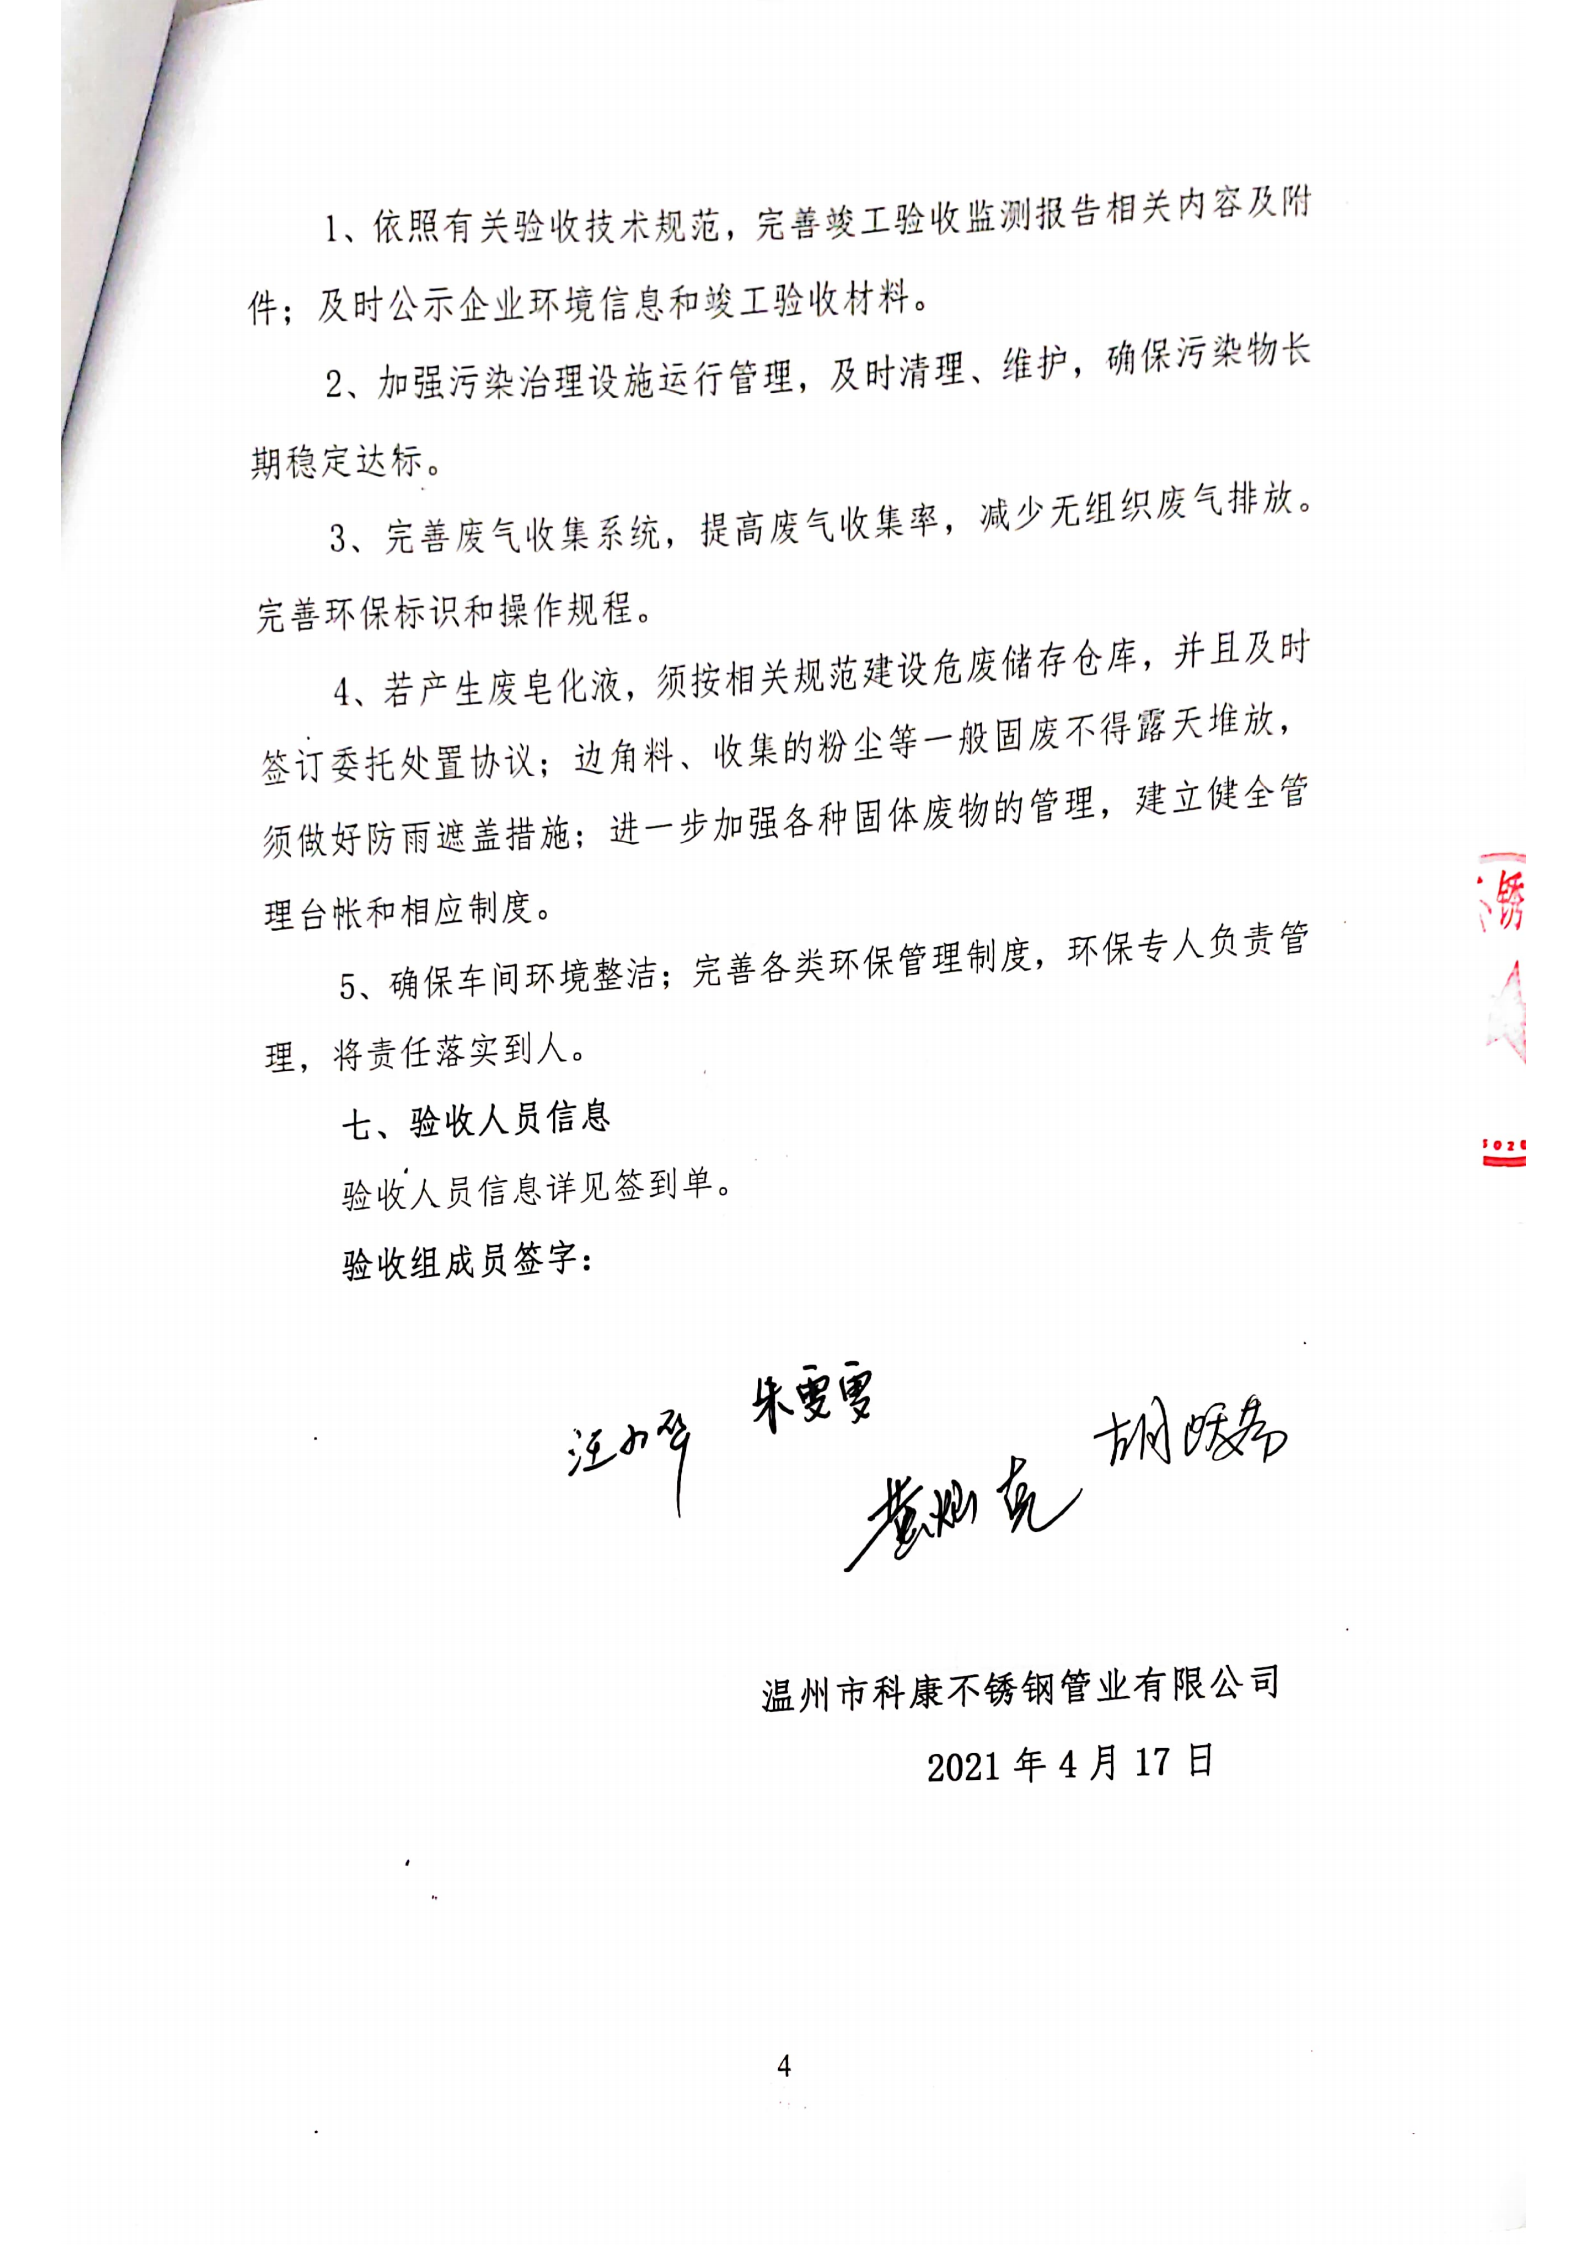 1、依照有关验收技术规范，完善竣工验收监测报告相关内容及附
件；及时公示企业环境信息和竣工验收材料。
2、加强污染治理设施运行管理，及时清理、维护，确保污染物长
期稳定达标。
3、完善废气收集系统，提高废气收集率，减少无组织废气排放。
完善环保标识和操作规程。
4、若产生废皂化液，须按相关规范建设危废储存仓库，并且及时
签订委托处置协议；边角料、收集的粉尘等一般固废不得露天堆放，
须做好防雨遮盖措施；进一步加强各种固体废物的管理，建立健全管
理台帐和相应制度。
5、确保车间环境整洁；完善各类环保管理制度，环保专人负责管
理，将责任落实到人。
七、验收人员信息
验收人员信息详见签到单。
验收组成员签字：
朱雯雯
汪小华
胡
黄灿亮
锈
温州市科康不锈钢管业有限公司
2021 年 4 月 17 日
4